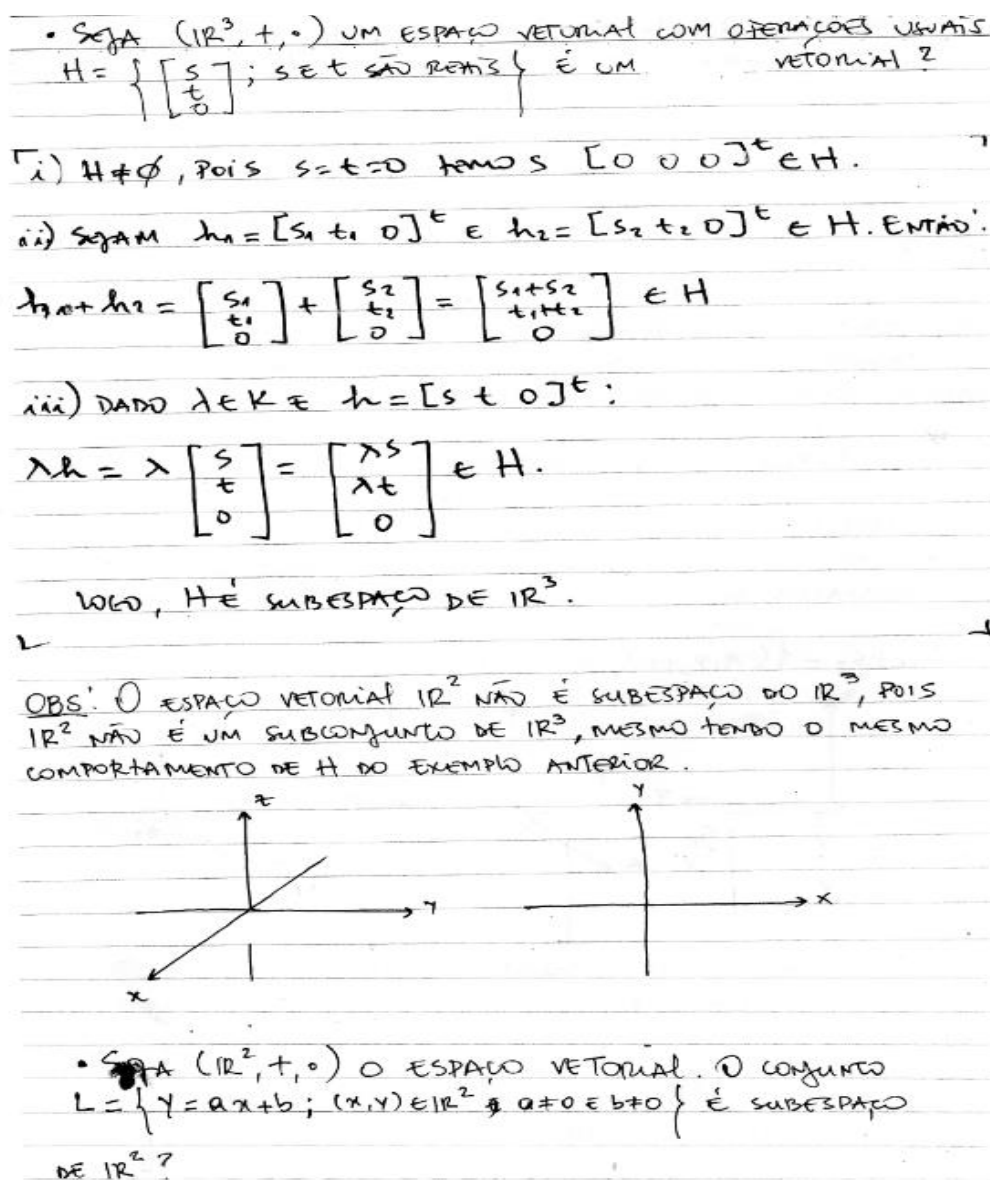 • SEJA (IR³, +, ·) UM ESPAÇO VETORIAL COM OPERAÇÕES USUAIS
H = { [s t 0] ; s E t SÃO REAIS } É UM VETORIAL ?
i) H ≠ ∅, POIS s=t=0 temos [0 0 0]ᵗ ∈ H.
ii) SEJAM h₁ = [s₁ t₁ 0]ᵗ E h₂ = [s₂ t₂ 0]ᵗ ∈ H. ENTÃO:
h₁+h₂ = [s₁ t₁ 0] + [s₂ t₂ 0] = [s₁+s₂ t₁+t₂ 0] ∈ H
iii) DADO λ ∈ K E h = [s t 0]ᵗ :
λh = λ [s t 0] = [λs λt 0] ∈ H.
LOGO, H É SUBESPAÇO DE IR³.
OBS: O ESPAÇO VETORIAL IR² NÃO É SUBESPAÇO DO IR³, POIS
IR² NÃO É UM SUBCONJUNTO DE IR³, MESMO TENDO O MESMO
COMPORTAMENTO DE H DO EXEMPLO ANTERIOR.
z y
y x
x
• SEJA (IR², +, ·) O ESPAÇO VETORIAL. O CONJUNTO
L = { Y = ax+b ; (x,y) ∈ IR² a≠0 E b≠0 } É SUBESPAÇO
DE IR² ?